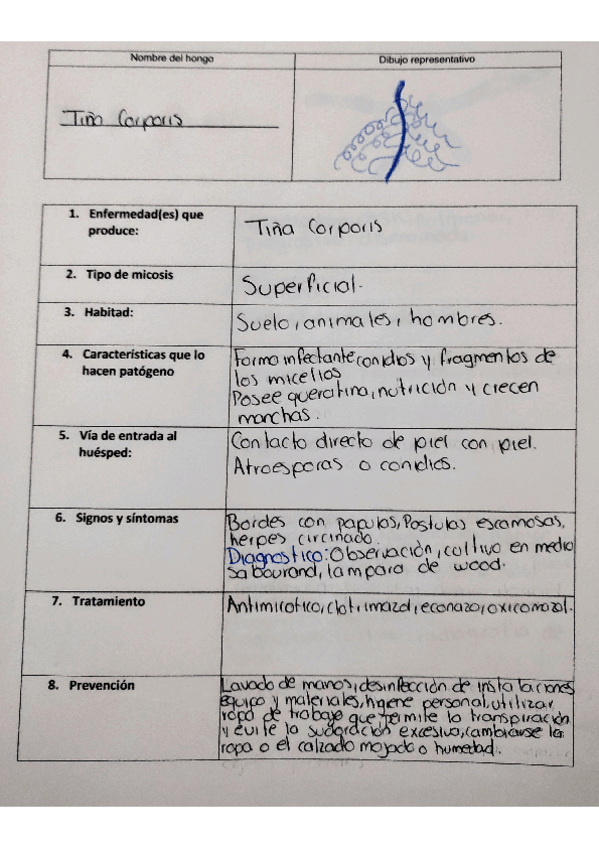 Nombre del hongo
Dibujo representativo
Tiña Corporis
1. Enfermedad(es) que
produce:
Tiña Corporis
2. Tipo de micosis
Superficial.
3. Habitad:
Suelo, animales, hombres.
4. Características que lo
hacen patógeno
Forma infectante conidios y fragmentos de
los micelios
Posee queratina, nutrición y crecen
manchas.
5. Vía de entrada al
huésped:
Contacto directo de piel con piel.
Atroesporas o conidios.
6. Signos y síntomas
Bordes con papulas, Postulas escamosas,
herpes circinado.
Diagnostico: Observación, cultivo en medio
sabouraud, lampara de wood.
7. Tratamiento
Antimicotico, clotrimazol, econazo, oxicomozol.
8. Prevención
Lavado de manos, desinfección de instalaciones
equipo y materiales, higiene personal, utilizar
ropa de trabajo que permite la transpiración
y evite la sudoración excesiva, cambiarse la
ropa o el calzado mojado o humedad.